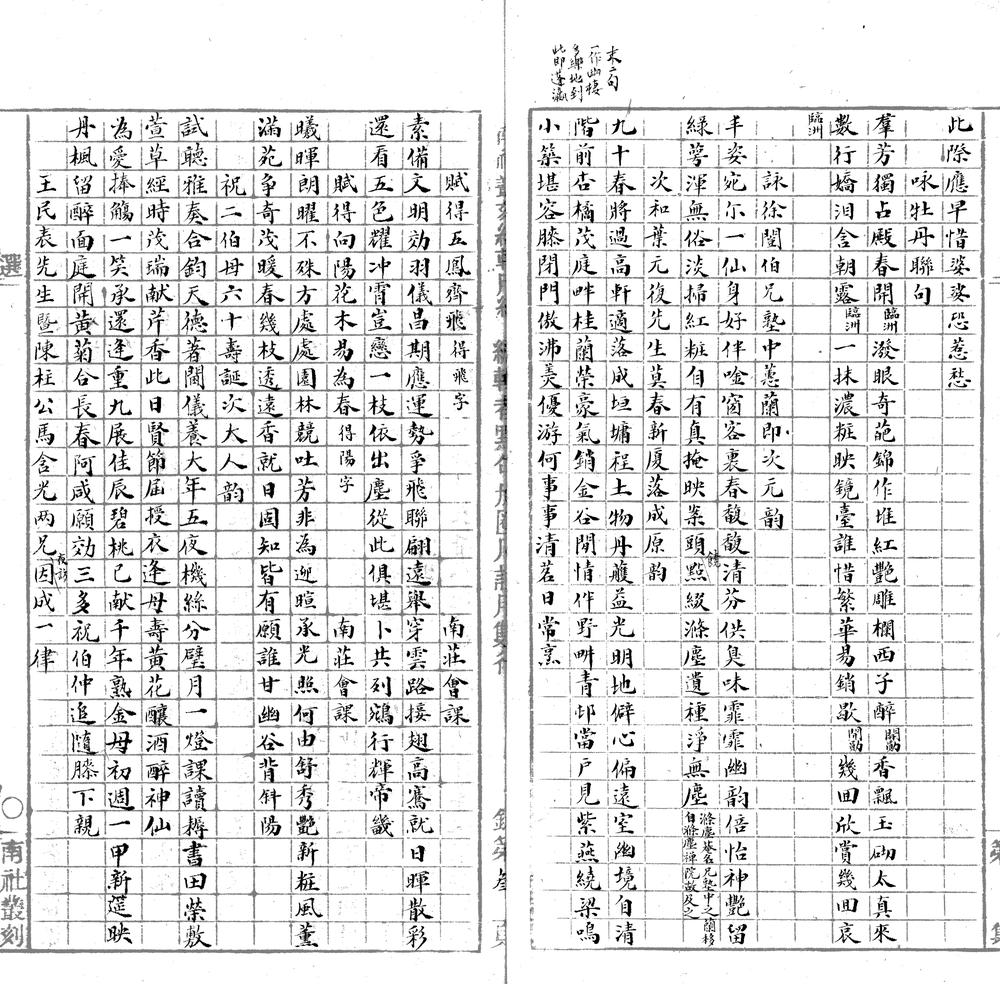 此際應早惜娑娑恐惹愁
咏牡丹聯句
羣芳獨占殿春開臨洲潑眼奇葩錦作堆紅艷雕欄西子醉閒勛香飄玉砌太真來
數行嬌泪含朝露臨洲一抹濃粧映鏡臺誰惜繁華易銷歇閒勛幾回欣賞幾回哀
臨洲
詠徐闇伯兄塾中蕙蘭即次元韵
丰姿宛尔一仙身好伴唫窗客裏春馥馥清芬供臭味霏霏幽韵倍怡神艷留
綠萼渾無俗淡掃紅粧自有真掩映案頭點綴滌塵遺種淨無塵滌塵菴名兄塾中之蘭移自滌塵禪院故及之
次和葉元復先生莫春新廈落成原韵
九十春將過高軒適落成垣墉程土物丹雘益光明地僻心偏遠室幽境自清
階前杏橘茂庭畔桂蘭榮豪氣銷金谷閒情伴野畊青邨當戶見紫燕繞梁鳴
小築堪容膝閉門傲沸羡優游何事事清茗日常烹
末二句
一作幽棲
多樂地到
此即蓬瀛
賦得五鳳齊飛得飛字
南莊會課
素備文明効羽儀昌期應運勢爭飛聯翩遠舉穿雲路接翅高騫就日暉散彩
還看五色耀冲霄豈戀一枝依出塵從此俱堪卜共列鵷行輝帝畿
賦得向陽花木易為春得陽字
南莊會課
曦暉朗曜不殊方處處園林競吐芳非為迎暄承光照何由舒秀艷新粧風薰
滿苑爭奇茂暖春幾枝透遠香就日固知皆有願誰甘幽谷背斜陽
祝二伯母六十壽誕次大人韵
試聽雅奏合鈞天德著閫儀養大年五夜機絲分璧月一燈課讀耨書田榮敷
萱草經時茂瑞献芹香此日賢節屆授衣逢母壽黃花釀酒醉神仙
為愛捧觴一笑承還逢重九展佳辰碧桃已献千年熟金母初週一甲新莚映
丹楓留醉面庭開黃菊合長春阿咸願効三多祝伯仲追隨膝下親
王民表先生暨陳柱公馬含光兩兄夜訪因成一律
選
南社叢刻